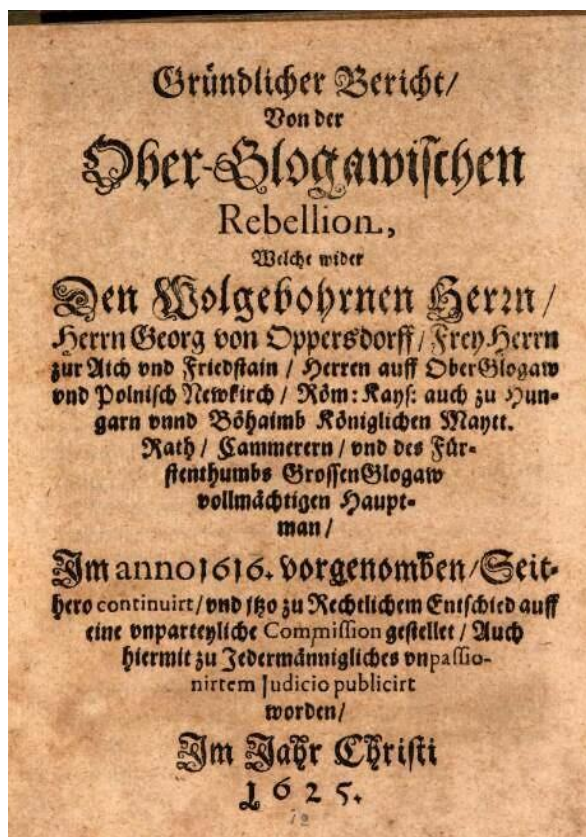 Gründlicher Bericht/
Von der
Ober-Glogawischen
Rebellion,
Welche wider
Den Wolgebohrnen Herrn/
Herrn Georg von Oppersdorff/ Frey Herrn
zur Aich vnd Friedstain/ Herren auff OberGlogaw
vnd Polnisch Newkirch/ Röm: Kays: auch zu Hun-
garn vnnd Böhaimb Königlichen Maytt.
Rath/ Cammerern/ vnd des Für-
stenthumbs GrossenGlogaw
vollmächtigen Haupt-
man/
Im anno 1616. vorgenomben/ Seit-
hero continuirt/ vnd itzo zu Rechtlichem Entschied auff
eine vnparteyliche Commission gestellet/ Auch
hiermit zu Jedermännigliches vnpassio-
nirtem Judicio publicirt
worden/
Im Jahr Christi
1625.